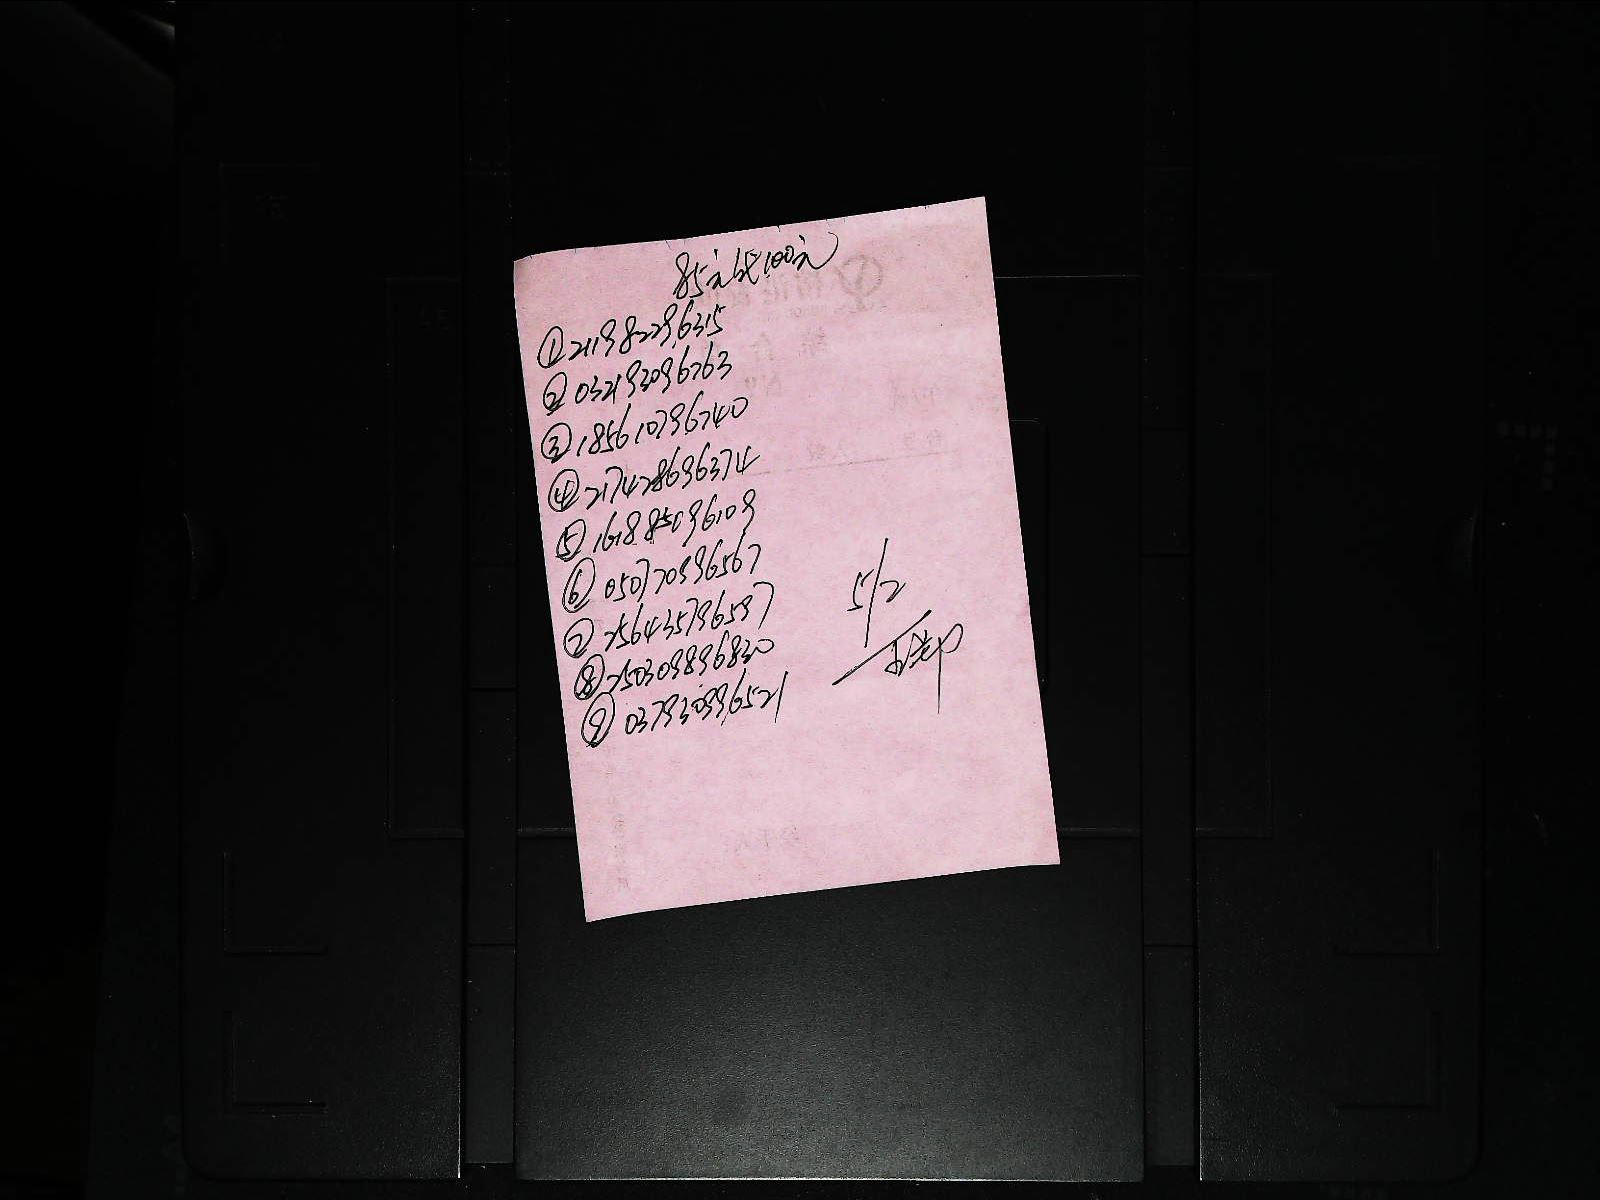 85元战100元
①211982296315
②032193096763
③185610796740
④217428696374
⑤161885096109
⑥050770996567
⑦256435796597
⑧250309896830
⑨037930996521
5/2